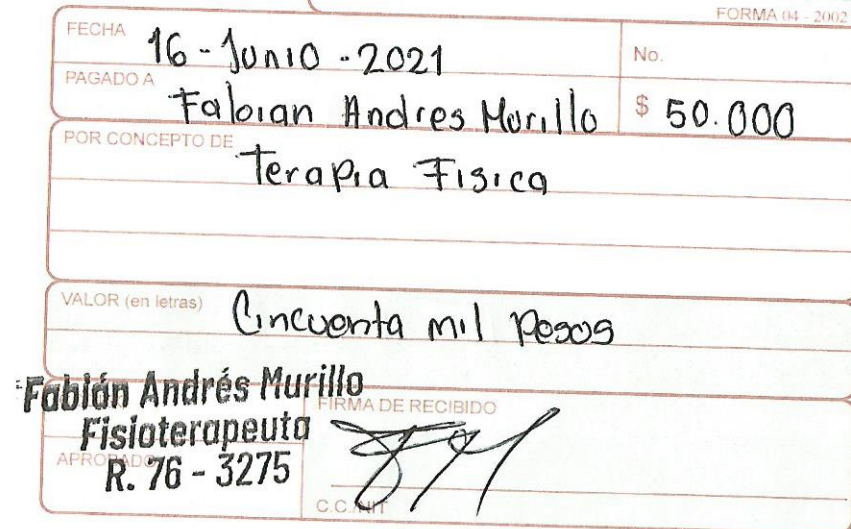 FORMA 04 - 2002
FECHA 16 - Junio - 2021
No.
PAGADO A Fabian Andres Murillo $ 50.000
POR CONCEPTO DE Terapia Fisica
VALOR (en letras) Cincuenta mil pesos
Fabián Andrés Murillo
Fisioterapeuta
R. 76 - 3275
APROBADO
FIRMA DE RECIBIDO
C.C./NIT